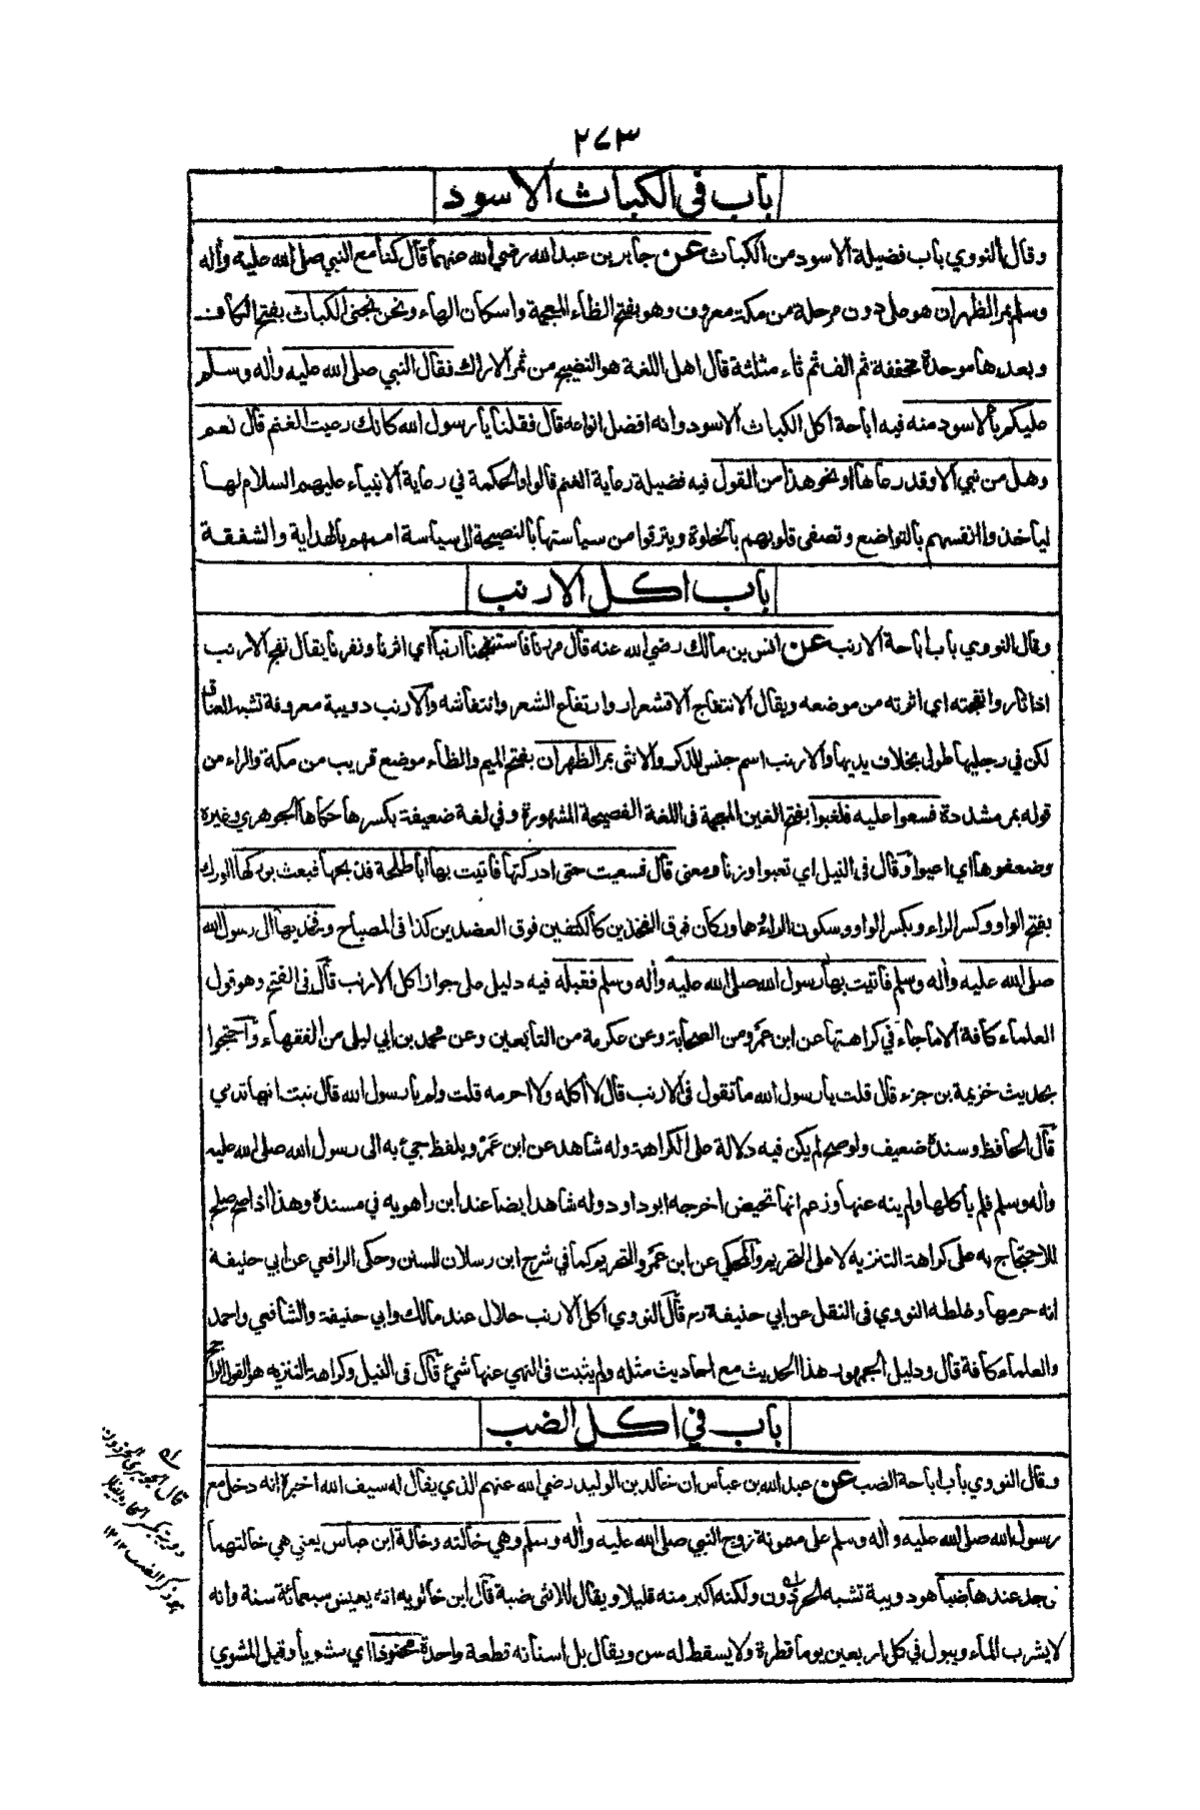 ٢٧٣
باب في الكباث الاسود
وقال النووي باب فضيلة الاسود من الكباث عن جابر بن عبد الله رضي الله عنهما قال كنا مع النبي صلى الله عليه وأله
وسلم بمر الظهران هو على دون مرحلة من مكة معروف وهو بفتح الظاء المعجمة واسكان الهاء ونحن نجنى الكباث بفتح الكاف
وبعدها موحدة مخففة ثم الف ثم ثاء مثلثة قال اهل اللغة هو النضيج من ثمر الاراك فقال النبي صلى الله عليه وأله وسلم
عليكم بالاسود منه فيه اباحة اكل الكباث الاسود وانه افضل انواعه قال فقلنا يا رسول الله كانك رعيت الغنم قال نعم
وهل من نبي الا وقد رعاها او نحو هذا من القول فيه فضيلة رعاية الغنم قالوا والحكمة في رعاية الانبياء عليهم السلام لها
لياخذوا انفسهم بالتواضع وتصفى قلوبهم بالخلوة ويترقوا من سياستها بالنصيحة الى سياسة اممهم بالهداية والشفقة
باب اكل الارنب
وقال النووي باب اباحة الارنب عن انس بن مالك رضي الله عنه قال مررنا فاستنفجنا ارنبا اي اثرنا ونفرنا يقال نفج الارنب
اذا ثار وانفجته اي اثرته من موضعه ويقال الانتفاج الاقشعرار وارتفاع الشعر وانتفاشه والارنب دويبة معروفة تشبه العناق
لكن في رجليها طول بخلاف يديها والارنب اسم جنس للذكر والانثى بمر الظهران بفتح الميم والظاء موضع قريب من مكة والراء من
قوله بمر مشددة فسعوا عليه فلغبوا بفتح الغين المعجمة فى اللغة الفصيحة المشهورة وفي لغة ضعيفة بكسرها حكاها الجوهري وغيره
وضعفوها اي اعيوا وقال فى النيل اي تعبوا وزنا ومعنى قال فسعيت حتى ادركتها فاتيت بها ابا طلحة فذبحها فبعث بوركها الورك
بفتح الواو وكسر الراء وبكسر الواو وسكون الراء هما وركان فوق الفخذين كالكتفين فوق العضدين كذا فى المصباح وفخذيها الى رسول الله
صلى الله عليه وأله وسلم فاتيت بها رسول الله صلى الله عليه وأله وسلم فقبله فيه دليل على جواز اكل الارنب قال فى الفتح وهو قول
العلماء كافة الا ما جاء في كراهتها عن ابن عمرو من الصحابة وعن عكرمة من التابعين وعن محمد بن ابي ليلى من الفقهاء واحتجوا
بحديث خزيمة بن جزء قال قلت يا رسول الله ما تقول فى الارنب قال لا أكله ولا احرمه قلت ولم يا رسول الله قال نبئت انها تدمي
قال الحافظ وسنده ضعيف ولو صح لم يكن فيه دلالة على الكراهة وله شاهد عن ابن عمرو بلفظ جيء به الى رسول الله صلى الله عليه
وأله وسلم فلم ياكلها ولم ينه عنها وزعم انها تحيض اخرجه ابو داود وله شاهد ايضا عند ابن راهويه في مسنده وهذا اذا صح صلح
للاحتجاج به على كراهة التنزيه لا على التحريم والمحكي عن ابن عمرو التحريم كما في شرح ابن رسلان للسنن وحكى الرافعي عن ابي حنيفة
انه حرمها وغلطه النووي فى النقل عن ابي حنيفة رح قال النووي اكل الارنب حلال عند مالك وابي حنيفة والشافعي واحمد
والعلماء كافة قال ودليل الجمهور هذا الحديث مع احاديث مثله ولم يثبت فى النهي عنها شيء قال فى النيل وكراهة التنزيه هو القول الراجح
باب في اكل الضب
وقال النووي باب اباحة الضب عن عبد الله بن عباس ان خالد بن الوليد رضي الله عنهم الذي يقال له سيف الله اخبره انه دخل مع
رسول الله صلى الله عليه وأله وسلم على ميمونة زوج النبي صلى الله عليه وأله وسلم وهي خالته وخالة ابن عباس يعني هي خالتهما
فوجد عندها ضبا هو دويبة تشبه الحرذون ولكنه اكبر منه قليلا ويقال للانثى ضبة قال ابن خالويه انه يعيش سبعمائة سنة وانه
لا يشرب الماء ويبول في كل اربعين يوما قطرة ولا يسقط له سن ويقال بل اسنانه قطعة واحدة محنوذا اي مشويا وقيل المشوي
قال الجوهري الحرذون
دويبة بكسر الحاء ويقال
هو ذكر الضب ١٢